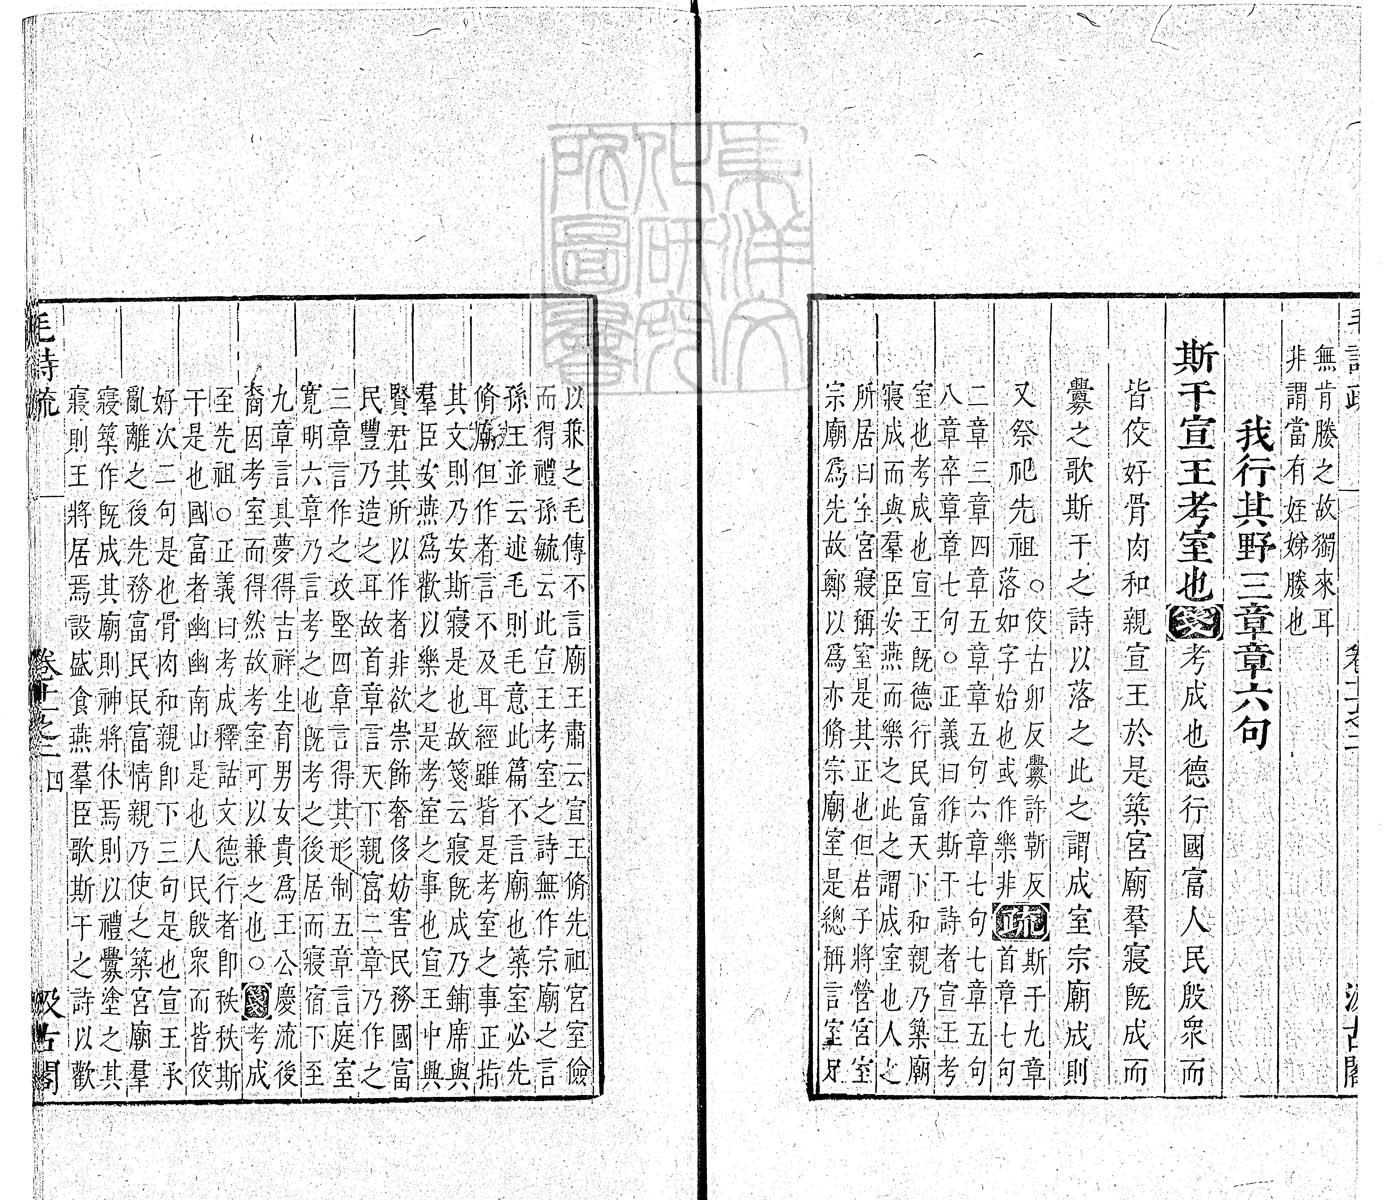 毛詩疏 卷十一之二 汲古閣
無肯媵之故獨來耳
非謂當有姪娣媵也
我行其野三章章六句
斯干宣王考室也箋考成也德行國富人民殷衆而
皆佼好骨肉和親宣王於是築宮廟羣寢旣成而
釁之歌斯干之詩以落之此之謂成室宗廟成則
又祭祀先祖○佼古卯反釁許靳反
落如字始也或作樂非疏斯干九章
首章七句
二章三章四章五章章五句六章七句七章五句
八章卒章章七句○正義曰作斯干詩者宣王考
室也考成也宣王旣德行民富天下和親乃築廟
寢成而與羣臣安燕而樂之此之謂成室也人之
所居曰室宮寢稱室是其正也但君子將營宮室
宗廟爲先故鄭以爲亦脩宗廟室是總稱言室足
以兼之毛傳不言廟王肅云宣王脩先祖宮室儉
而得禮孫毓云此宣王考室之詩無作宗廟之言
孫王並云述毛則毛意此篇不言廟也築室必先
脩廟但作者言不及耳經雖皆是考室之事正指
其文則乃安斯寢是也故箋云寢旣成乃鋪席與
羣臣安燕爲歡以樂之是考室之事也宣王中興
賢君其所以作者非欲崇飾奢侈妨害民務國富
民豐乃造之耳故首章言天下親富二章乃作之
三章言作之攻堅四章言得其形制五章言庭室
寬明六章乃言考之也旣考之後居而寢宿下至
九章言其夢得吉祥生育男女貴爲王公慶流後
裔因考室而得然故考室可以兼之也○箋考成
至先祖○正義曰考成釋詁文德行者卽秩秩斯
干是也國富者幽幽南山是也人民殷衆而皆佼
好次二句是也骨肉和親卽下三句是也宣王承
亂離之後先務富民民富情親乃使之築宮廟羣
寢築作旣成其廟則神將休焉則以禮釁塗之其
寢則王將居焉設盛食燕羣臣歌斯干之詩以歡
毛詩疏 卷十一之二 四 汲古閣
東洋文化研究所圖書